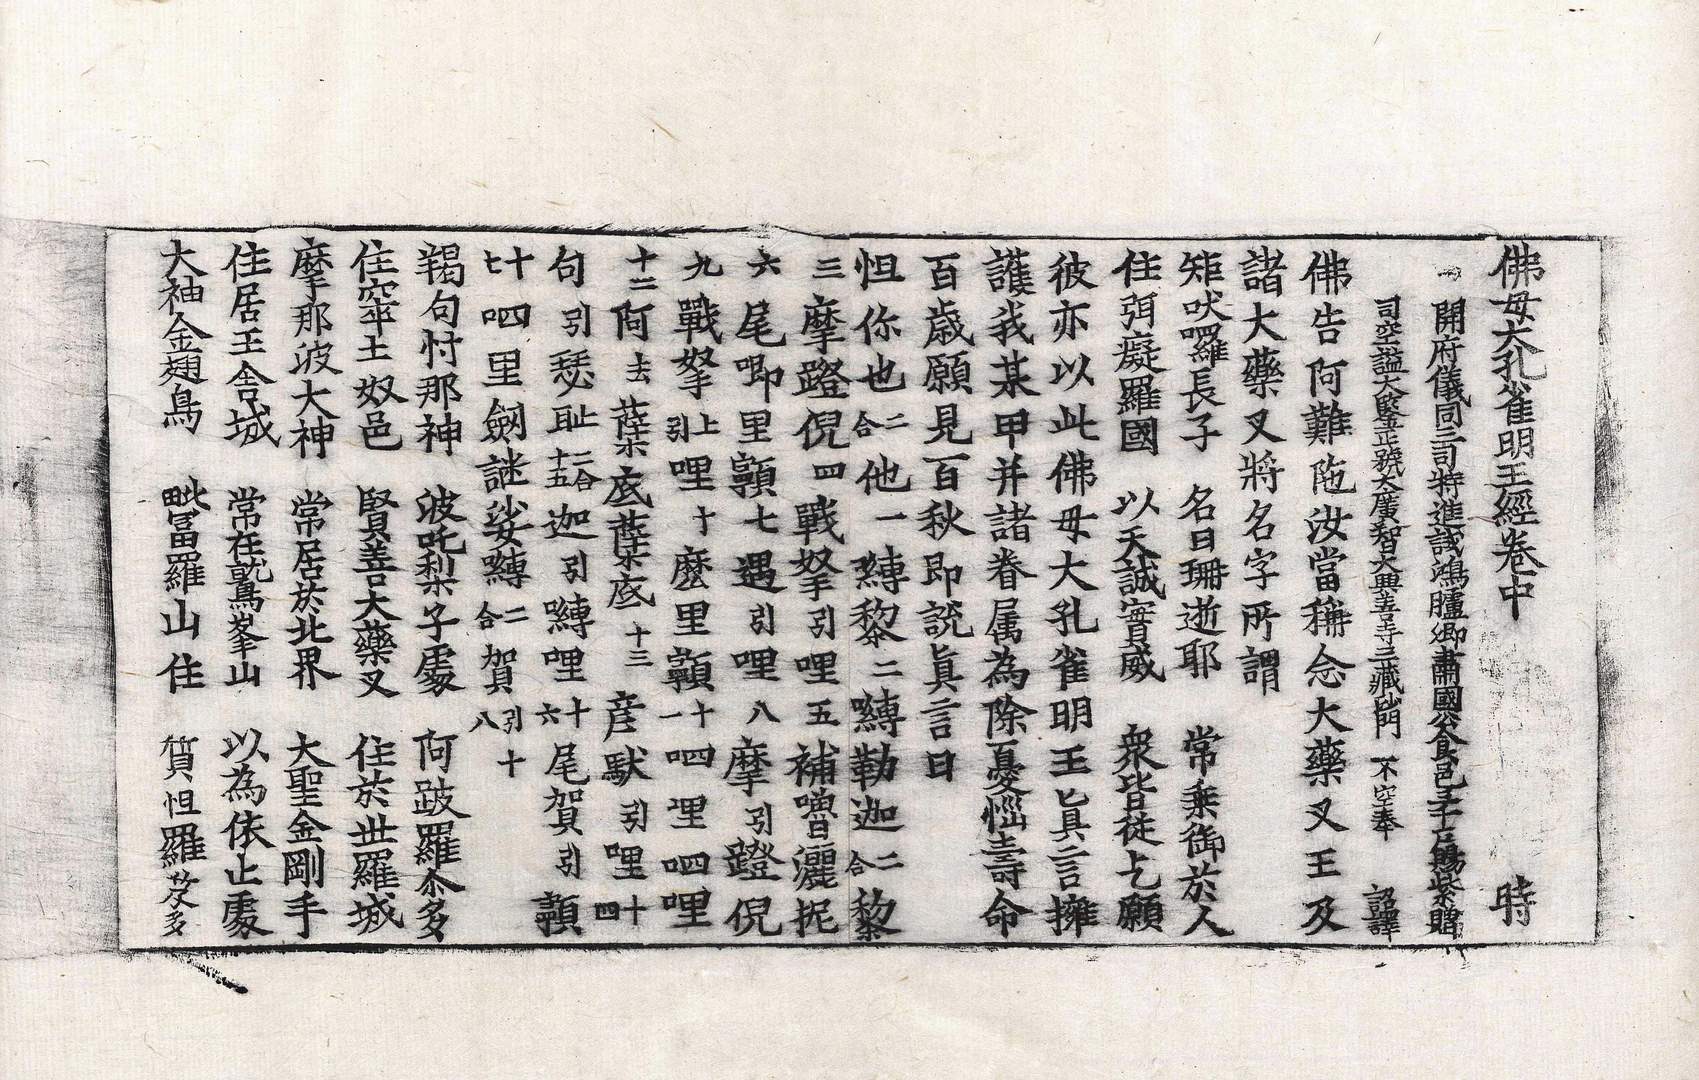 佛母大孔雀明王經卷中 時
開府儀同三司特進試鴻臚卿肅國公食邑三千户賜紫贈
司空謚大鑒正號大廣智大興善寺三藏沙門 不空奉 詔譯
佛告阿難陁汝當稱念大藥叉王及
諸大藥叉將名字所謂
矩吠囉長子 名曰珊逝耶 常乗御於人
住弭癡羅國 以天誠實威 衆皆從乞願
彼亦以此佛母大孔雀明王真言擁
護我某甲并諸眷属為除憂惱壽命
百歲願見百秋即説真言曰
怛你也二合他一嚩黎二嚩勒迦二合黎
三摩蹬倪四戰拏引哩五補嚕灑抳
六尾唧里顊七遇引哩八摩引蹬倪
九戰拏上引哩十麽里顊十一呬哩呬哩
十二阿去蘖底蘖底十三彦馱引哩十四
句引瑟耻二合十五迦引嚩哩十六尾賀引顊
十七呬里劒謎娑嚩二合賀引十八
羯句忖那神 波吒梨子處 阿跛羅尒多
住窣土奴邑 賢善大藥叉 住於世羅城
摩那波大神 常居於北界 大聖金剛手
住居王舍城 常在鷲峯山 以為依止處
大神金翅鳥 毗富羅山住 質怛羅笈多